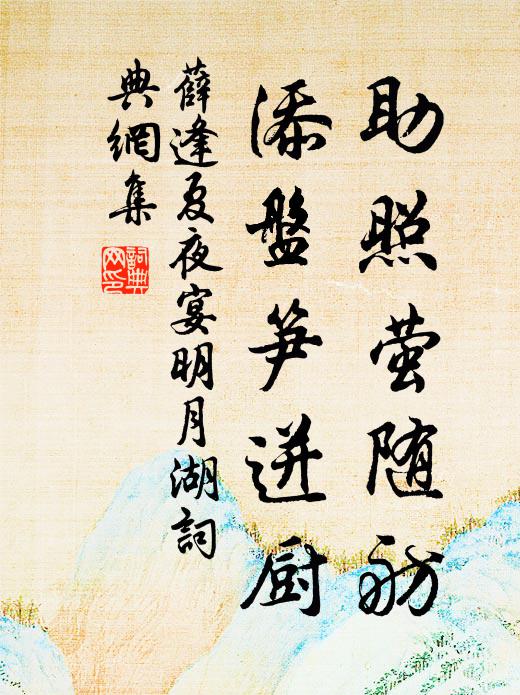 助照萤随舫
添盤笋迸厨
薛逢夏夜宴明月湖詞
典網集
詞典
网印